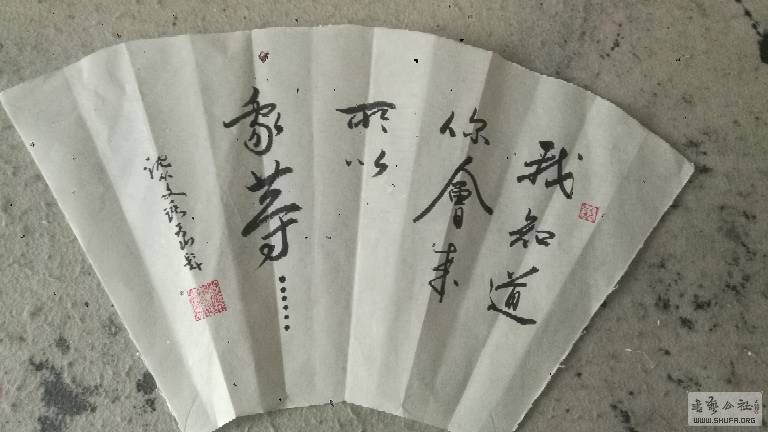 我知道
你會来
所以
我等……
沈从文語
WWW.SHUFA.ORG